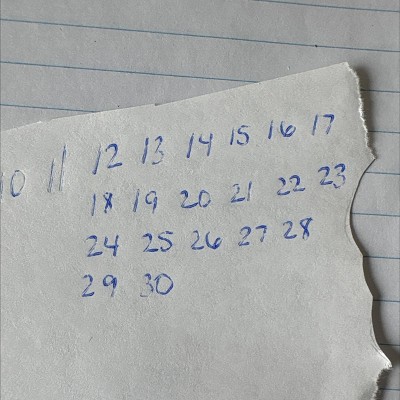 10 11 12 13 14 15 16 17
18 19 20 21 22 23
24 25 26 27 28
29 30